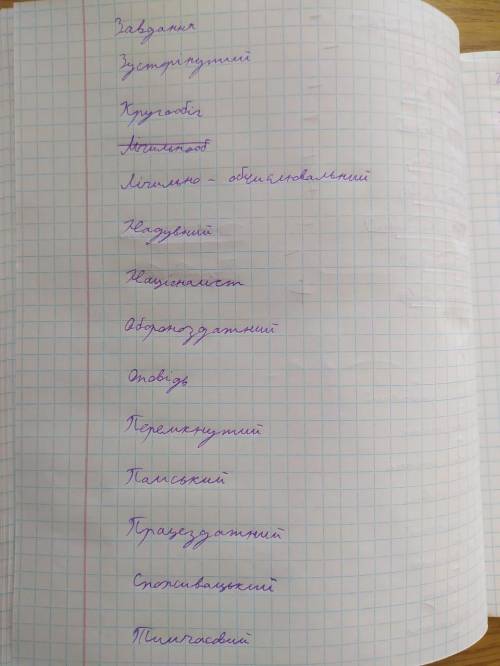 Завдання
Зустрінутий
Кругообіг
Лічильнооб
Лічильно - обчислювальний
Надувний
Націоналіст
Обороноздатний
Оповідь
Перемкнутий
Панський
Працездатний
Споживацький
Тимчасовий